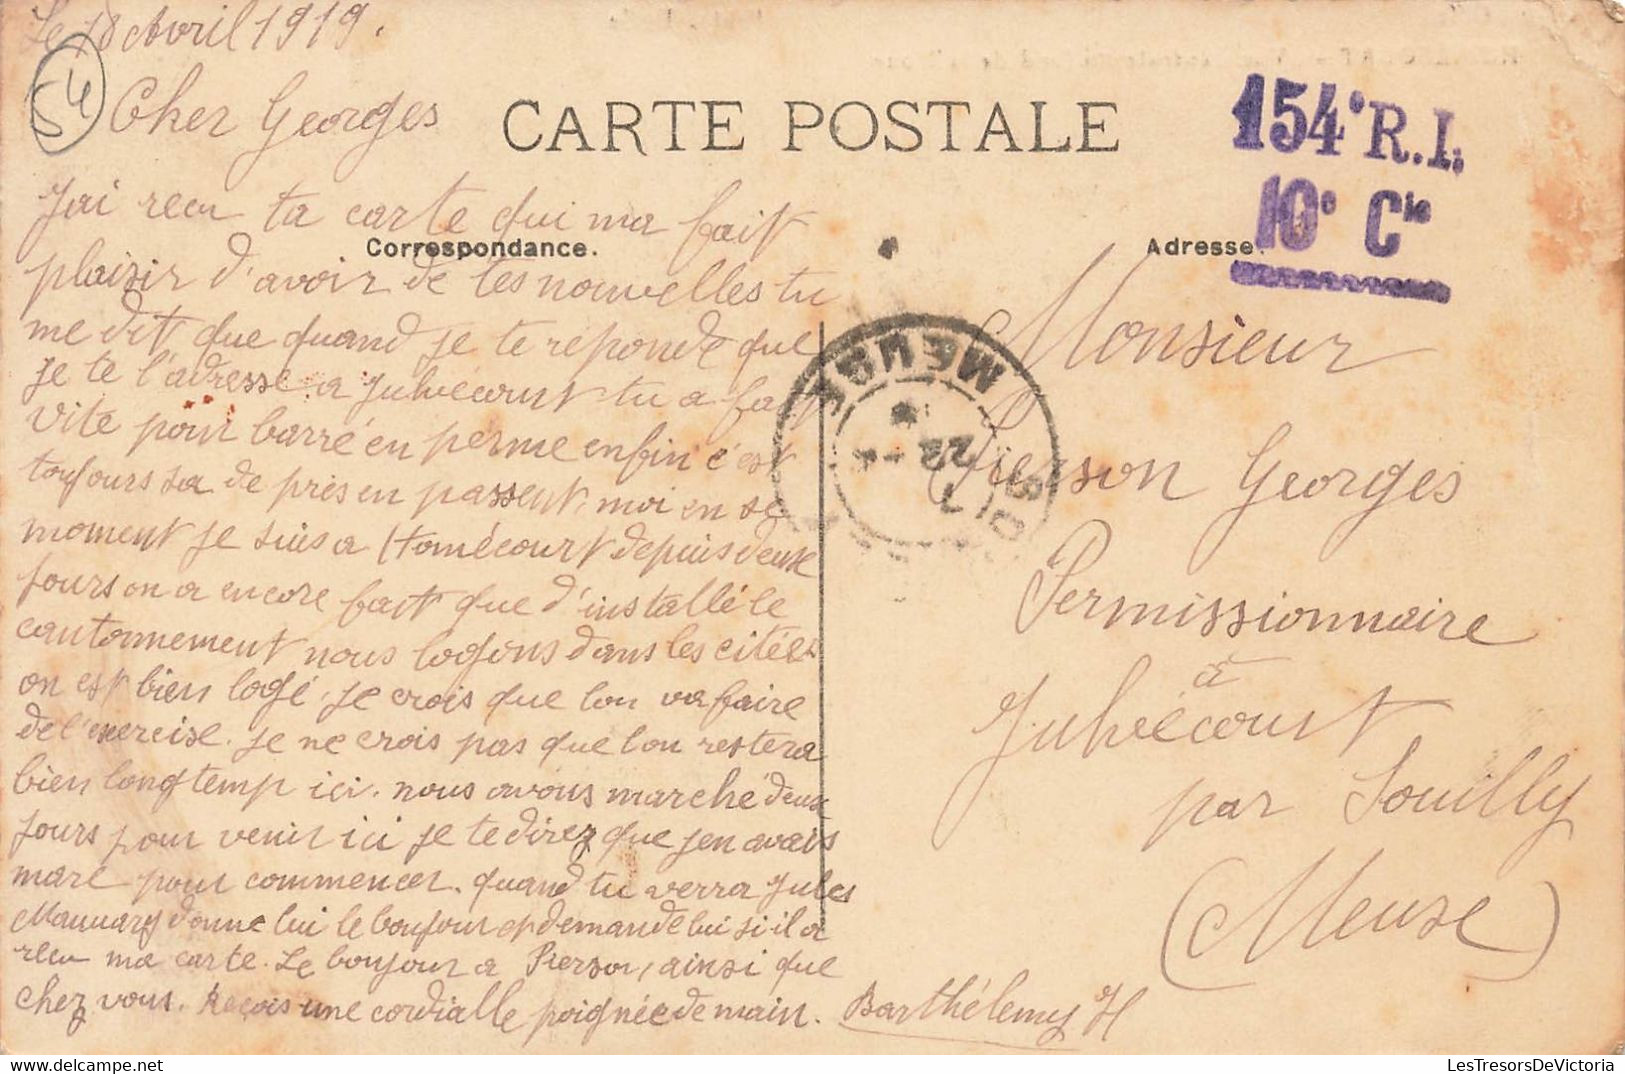 Le 18 Avril 1919.
54
Cher Georges
CARTE POSTALE
154e R.I.
10e Cie
J'ai recu ta carte qui ma fait
Correspondance.
Adresse.
plaisir d'avoir de tes nouvelles tu
me dit que quand je te reponde que
je te l'adresse a Julvécourt tu a fait
vite pour barré en perme enfin c'est
toujours sa de pres en passent, moi en se
moment je suis a Homécourt depuis deux
jours on a encore fait que d'installé le
cantonnement nous logeons dans les citées
on est bien logé, je crois que lon va faire
de l'exercise. je ne crois pas que lon restera
bien longtemp ici. nous avons marché deux
jours pour venir ici je te direz que jen avais
mare pour commencer. quand tu verra Jules
Mauuary donne lui le boujour et demande lui si il a
recu ma carte. Le boujour a Pierson, ainsi que
chez vous. Reçois une cordialle poignée de main. Barthélemy H
MEUSE
22
Monsieur
Pierson Georges
Permissionnaire
à
Julvécourt
par Souilly
(Meuse)
LesTresorsDeVictoria.com